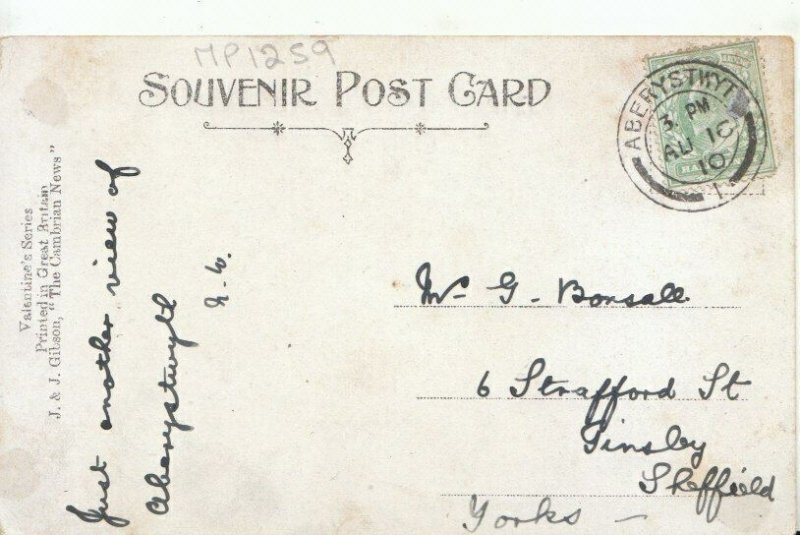 MP1259
SOUVENIR POST CARD
ABERYSTWYT
3 PM
AU 16
10
1
Valentine's Series
Printed in Great Britain
J. & J. Gibson, "The Cambrian News"
Just another view of
Aberystwyth
N. W.
Mr G. Bonsall
6 Strafford St
Tinsley
Sheffield
Yorks —